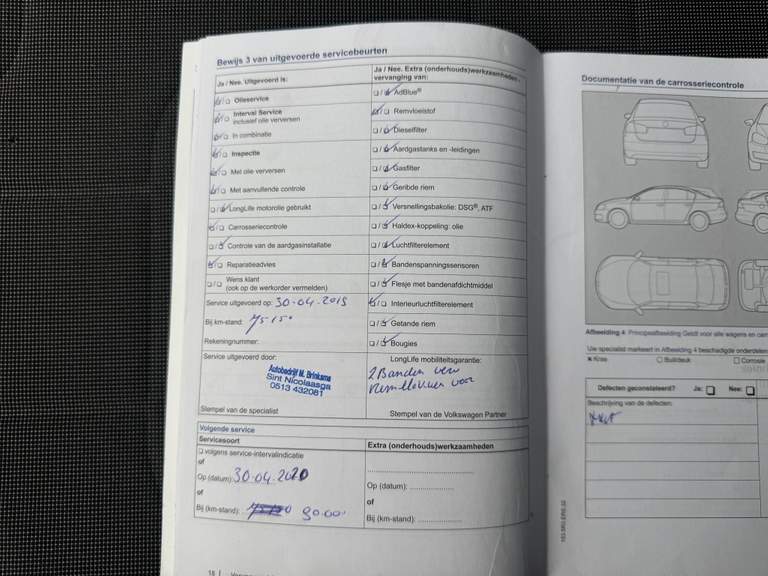 Bewijs 3 van uitgevoerde servicebeurten
Ja / Nee. Uitgevoerd is:
Olieservice
Interval Service
inclusief olie verversen
In combinatie
Inspectie
Met olie verversen
Met aanvullende controle
LongLife motorolie gebruikt
Carrosseriecontrole
Controle van de aardgasinstallatie
Reparatieadvies
Wens klant
(ook op de werkorder vermelden)
Service uitgevoerd op: 30-04-2019
Bij km-stand:
Rekeningnummer:
Service uitgevoerd door:
Autobedrijf M. Brinksma
Sint Nicolaasga
0513 432081
Stempel van de specialist
Ja / Nee. Extra (onderhouds)werkzaamheden,
vervanging van:
AdBlue®
Remvloeistof
Dieselfilter
Aardgastanks en -leidingen
Gasfilter
Geribde riem
Versnellingsbakolie: DSG®, ATF
Haldex-koppeling: olie
Luchtfilterelement
Bandenspanningssensoren
Flesje met bandenafdichtmiddel
Interieurluchtfilterelement
Getande riem
Bougies
LongLife mobiliteitsgarantie:
2 Banden
voor
Stempel van de Volkswagen Partner
Volgende service
Servicesoort
volgens service-intervalindicatie
of
Op (datum): 30-04-2020
of
Bij (km-stand): 90.000
Extra (onderhouds)werkzaamheden
Op (datum):
of
Bij (km-stand):
Documentatie van de carrosseriecontrole
Afbeelding 4 Principeafbeelding Geldt voor alle wagens en
Uw specialist markeert in Afbeelding 4 beschadigde onderdelen
Kras
Buil/deuk
Corrosie
Defecten geconstateerd?
Ja:
Nee:
Beschrijving van de defecten: